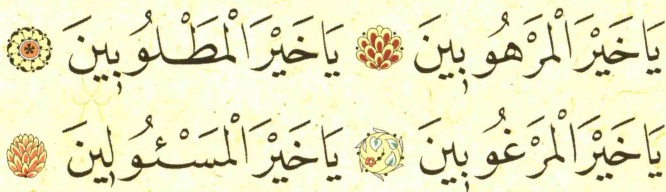 يَا خَيْرَ الْمَرْهُوبِينَ يَا خَيْرَ الْمَطْلُوبِينَ
يَا خَيْرَ الْمَرْغُوبِينَ يَا خَيْرَ الْمَسْئُولِينَ